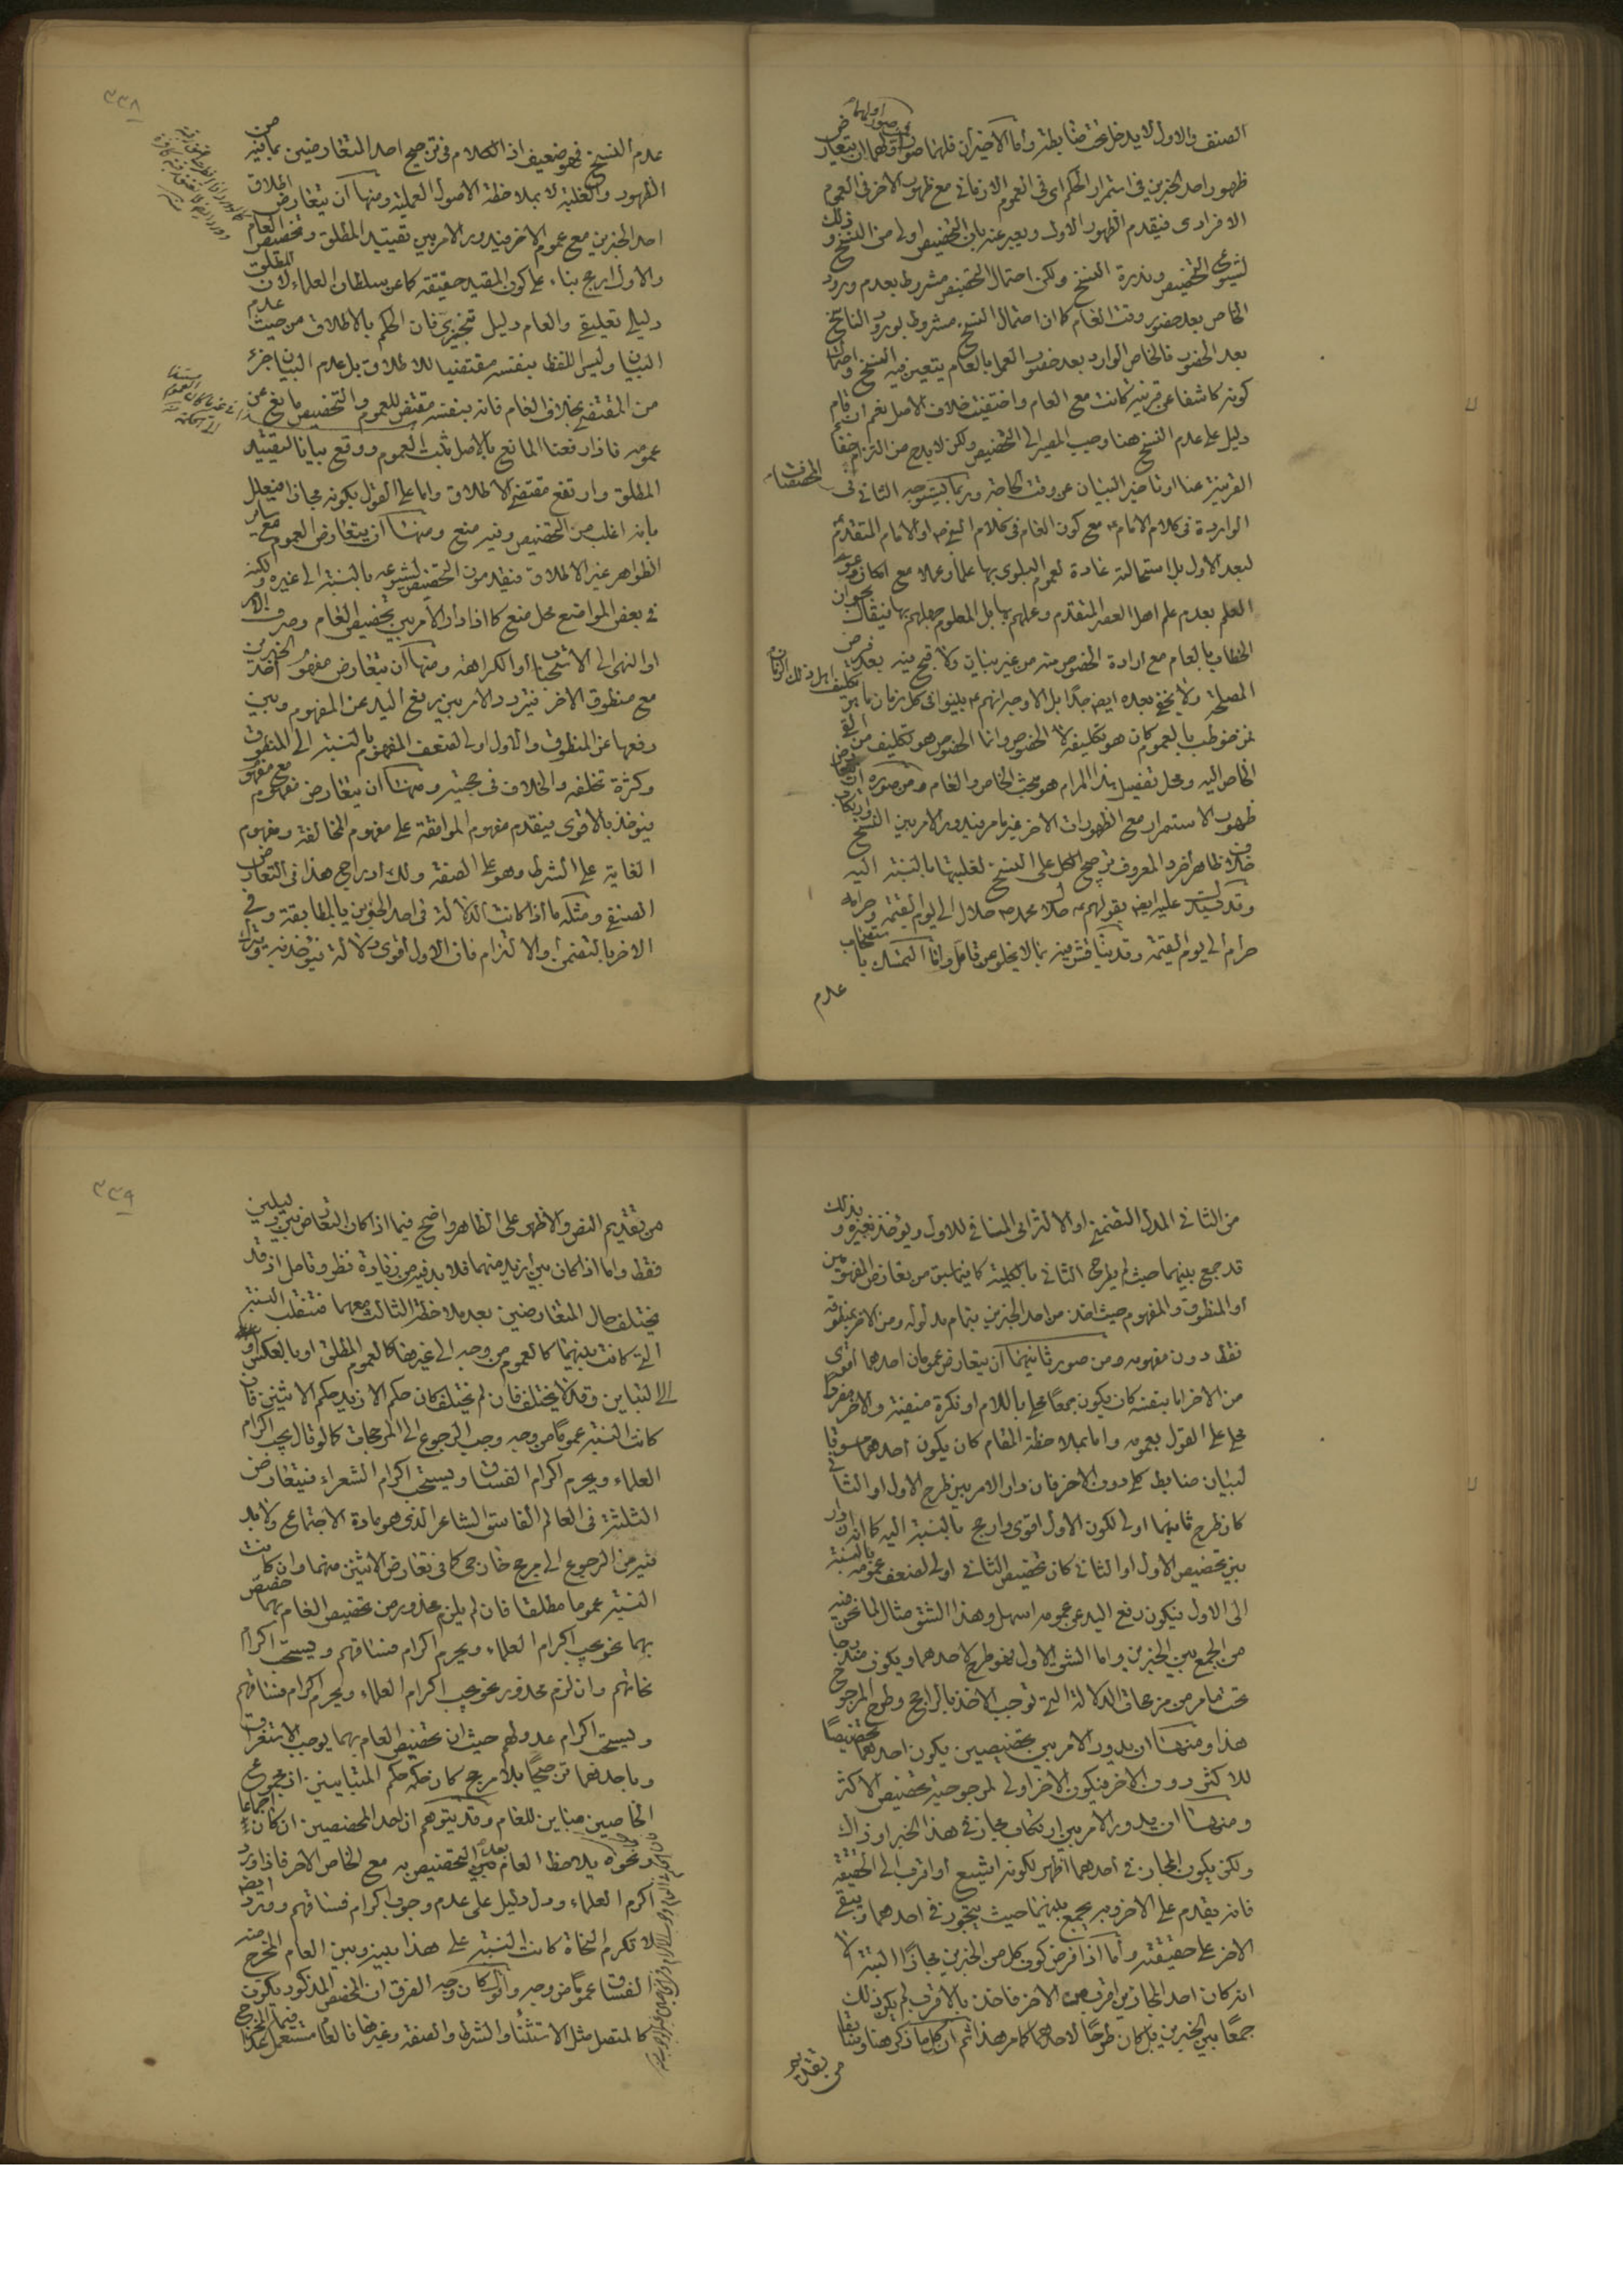 الصنف والاول لا يدخل تحت ضابطة واما الاخيران فلهما صور اولهما ان يتعارض
ظهور احد الخبرين في استمرار الحكم اى فى العموم الازمانى مع ظهور الاخر فى العموم
الافرادى فيقدم الظهور الاول ويعبر عنه بان التخصيص اولى من النسخ وذلك
لشيوع التخصيص وندرة النسخ ولكن احتمال التخصيص مشروط بعدم ورود
الخاص بعد حضور وقت العام كما ان احتمال النسخ مشروط بورود الناسخ
بعد الحضور فالخاص الوارد بعد حضور العمل بالعام يتعين فيه النسخ واحتمال
كونه كاشفا عن قرينة كانت مع العام واختفيت خلاف الاصل نعم ان قام
دليل على عدم النسخ هنا وجب المصير الى التخصيص ولكن لا بد ح من التزام خفاء
القرينة عنا او تاخير البيان عن وقت الحاجة وربما يستوجه الثانى فى المخصصات
الواردة فى كلام الامام ع مع كون العام فى كلام النبى ص او الامام المتقدم ع
لبعد الاول بل استحالته عادة لعموم البلوى بها علما وعملا مع امكان دعوى
العلم بعدم علم اهل العصر المتقدم وعملهم بها بل المعلوم جهلهم بها فيقال بجواز
الخطاب بالعام مع ارادة الخصوص منه من غير بيان ولا قبح فيه بعد فرض
المصلحة ولا يخفى بعده ايض جدا بل الاوجه انهم ع بينوا فى كل زمان ما هو تكليف اهل ذلك الزمان
فمن خوطب بالعموم كان هو تكليفه لا الخصوص وانما الخصوص هو تكليف من القى
الخاص اليه ومحل تفصيل هذا المرام هو مبحث الخاص والعام ومن صوره ان يتعارض
ظهور الاستمرار مع الظهورات الاخر غير ما مر فيدور الامر بين النسخ وارتكاب
خلاف ظاهر اخر والمعروف ترجيح الكل على النسخ لغلبتها بالنسبة اليه
وقد يستدل عليه ايض بقولهم ع حلال محمد ص حلال الى يوم القيمة وحرامه
حرام الى يوم القيمة وقد يناقش فيه بما لا يخلو عن تامل واما التمسك باستصحاب
عدم
٣٣٨
عدم النسخ فهو ضعيف اذ الكلام فى ترجيح احد المتعارضين بما فيه من
الظهور والغلبة لا بملاحظة الاصول العملية ومنها ان يتعارض اطلاق
احد الخبرين مع عموم الاخر فيدور الامر بين تقييد المطلق وتخصيص العام
والاول ارجح بناء على كون المقيد حقيقة كما عن سلطان العلماء لان المطلق
دليل تعليقى والعام دليل تنجيزى فان الحكم بالاطلاق من حيث عدم
البيان وليس اللفظ بنفسه مقتضيا للاطلاق بل عدم البيان جزء
من المقتضى بخلاف العام فانه بنفسه مقتض للعموم والتخصيص مانع عن
عمومه فاذا رفعنا المانع بالاصل ثبت العموم ووقع بيانا لتقييد
المطلق وارتفع مقتضى الاطلاق واما على القول بكونه مجازا فيعلل
بانه اغلب من التخصيص وفيه منع ومنها ان يتعارض العموم مع ساير
الظواهر غير الاطلاق فيقدمون التخصيص لشيوعه بالنسبة الى غيره ولكنه
فى بعض المواضع محل منع كما اذا دار الامر بين تخصيص العام وصرف الامر
او النهى الى الاستحباب او الكراهة ومنها ان يتعارض مفهوم احد الخبرين
مع منطوق الاخر فيتردد الامر بين رفع اليد عن المفهوم وبين
رفعها عن المنطوق والاول اولى لضعف المفهوم بالنسبة الى المنطوق
وكثرة تخلفه والخلاف فى حجيته ومنها ان يتعارض مفهوم مع مفهوم
فيؤخذ بالاقوى فيقدم مفهوم الموافقة على مفهوم المخالفة ومفهوم
الغاية على الشرط وهو على الصفة ولك ادراج هذا فى التعارض
الصنفى ومثله ما اذا كانت الدلالة فى احد الخبرين بالمطابقة وفى
الاخر بالتضمن او الالتزام فان الاول اقوى دلالة فيؤخذ به ويترك
من الثانى المدلول التضمنى او الالتزامى المنافى للاول ويؤخذ بغيره وبذلك
قد جمع بينهما حيث لم يطرح الثانى بالكلية كما فيما سبق من تعارض المفهومين
او المنطوق والمفهوم حيث اخذ من احد الخبرين بتمام مدلوله ومن الاخر بمنطوقه
فقط دون مفهومه ومن صور ثانيهما ان يتعارض عمومان احدهما اقوى
من الاخر اما بنفسه كان يكون جمعا محلى باللام او نكرة منفية والاخر مفردا
محلى على القول بعمومه واما بملاحظة المقام كان يكون احدهما مسوقا
لبيان ضابط كلى دون الاخر فان دار الامر بين طرح الاول او الثانى
كان طرح ثانيهما اولى لكون الاول اقوى وارجح بالنسبة اليه كما انه لو دار
بين تخصيص الاول او الثانى كان تخصيص الثانى اولى لضعف عمومه بالنسبة
الى الاول فيكون رفع اليد عن عمومه اسهل وهذا الشق مثال لما نحن فيه
من الجمع بين الخبرين واما الشق الاول فهو طرح لاحدهما ويكون مندرجا
تحت ما مر من مرجحات الدلالة التى توجب الاخذ بالراجح وطرح المرجوح
هذا ومنها ان يدور الامر بين تخصيصين يكون احدهما تخصيصا
للاكثر دون الاخر فيكون الاخر اولى لمرجوحية تخصيص الاكثر
ومنها ان يدور الامر بين ارتكاب مجاز فى هذا الخبر او ذاك
ولكن يكون المجاز فى احدهما اظهر لكونه اشيع او اقرب الى الحقيقة
فانه يقدم على الاخر وبه يجمع بينهما حيث يتجوز فى احدهما ويبقى
الاخر على حقيقته واما اذا فرض كون كل من الخبرين مجازا البتة الا
انه كان احد المجازين اقرب من الاخر فاخذ بالاقرب لم يكن ذلك
جمعا بين الخبرين بل كان طرحا لاحدهما كما مر هذا ثم ان كل ما ذكر هنا وسابقا
من تقديم
٣٣٩
من تقديم النص والاظهر على الظاهر واضح فيما اذا كان التعارض بين دليلين
فقط واما اذا كان بين ازيد منهما فلا بد فيه من زيادة نظر وتامل اذ قد
يختلف حال المتعارضين بعد ملاحظة الثالث معهما فتنقلب النسبة
التى كانت بينهما كالعموم من وجه الى غيرها كالعموم المطلق او بالعكس او
الى التباين وقد لا يختلف فان لم يختلف كان حكم الازيد حكم الاثنين فان
كانت النسبة عموما من وجه وجب الرجوع الى المرجحات كما لو قال يجب اكرام
العلماء ويحرم اكرام الفساق ويستحب اكرام الشعراء فيتعارض
الثلثة فى العالم الفاسق الشاعر الذى هو مادة الاجتماع ولا بد
فيه من الرجوع الى مرجح خارجى كما فى تعارض الاثنين منهما وان كانت
النسبة عموما مطلقا فان لم يلزم محذور من تخصيص العام بهما خصص
بهما نحو يجب اكرام العلماء ويحرم اكرام فساقهم ويستحب اكرام
نحاتهم وان لزم محذور نحو يجب اكرام العلماء ويحرم اكرام فساقهم
ويستحب اكرام عدولهم حيث ان تخصيص العام بهما يوجب الاستغراق
وباحدهما ترجيحا بلا مرجح كان حكمه حكم المتباينين اذ مجموع
الخاصين مباين للعام وقد يتوهم ان احد المخصصين ان كان اجماعا
ونحوه يلاحظ العام بعد التخصيص به مع الخاص الاخر فاذا ورد
اكرم العلماء ودل دليل على عدم وجوب اكرام فساقهم وورد ايضا
لا تكرم النحاة كانت النسبة على هذا بينه وبين العام المخرج منه
الفساق عموما من وجه وكان وجه الفرق ان المخصص المذكور يكون
كالمتصل مثل الاستثناء والشرط والصفة وغيرها فالعام مستعمل فيما عدا المخرج